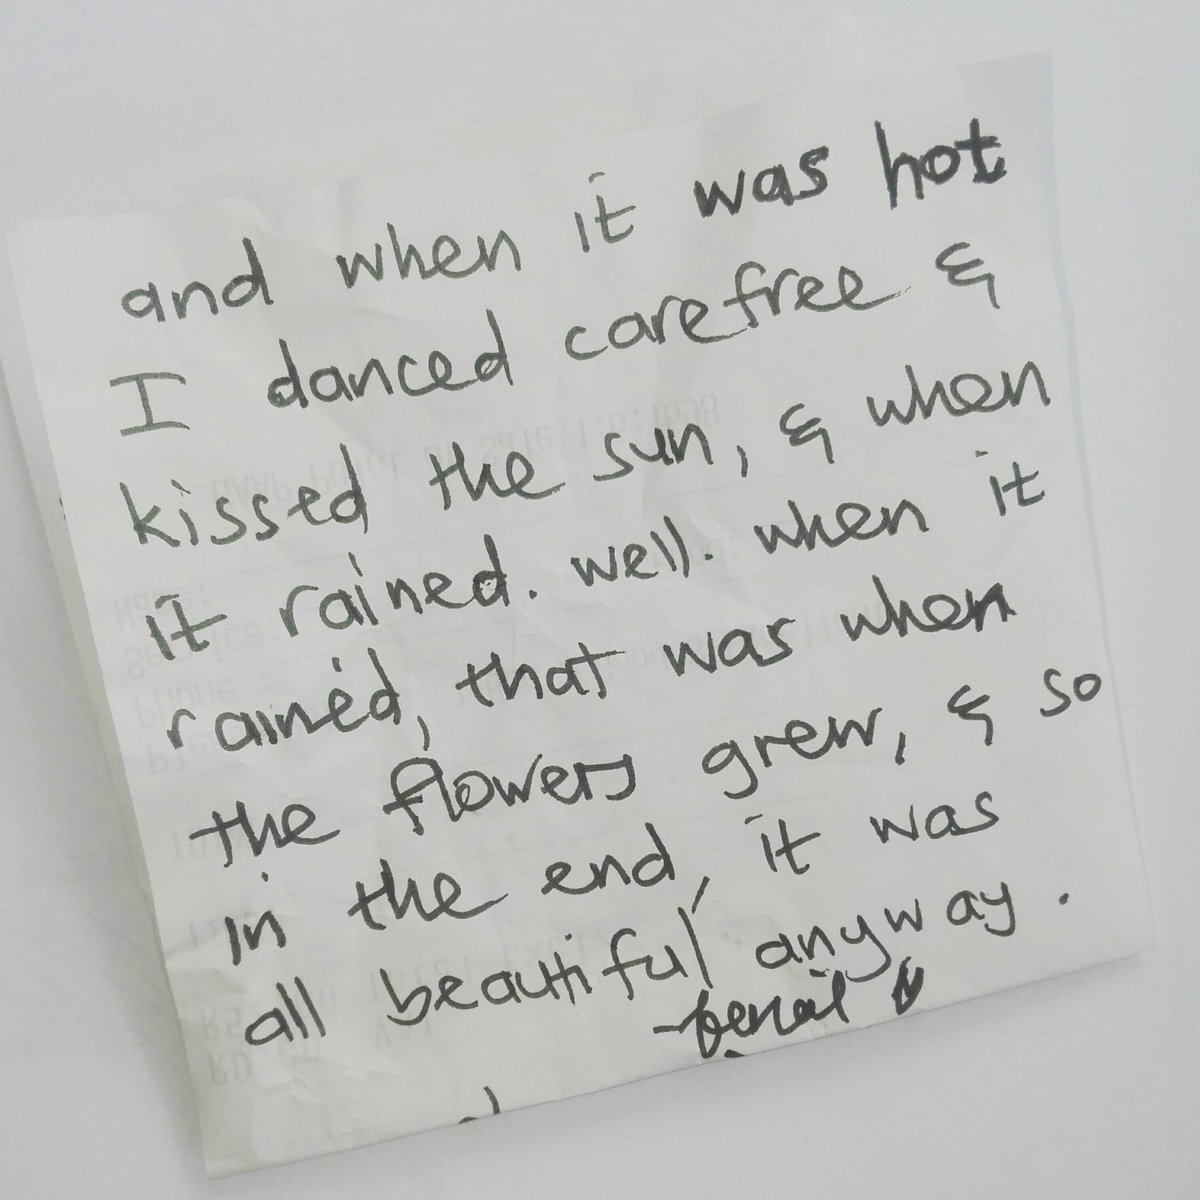 and when it was hot
I danced carefree &
kissed the sun, & when
it rained. well. when it
rained, that was when
the flowers grew, & so
in the end, it was
all beautiful anyway.